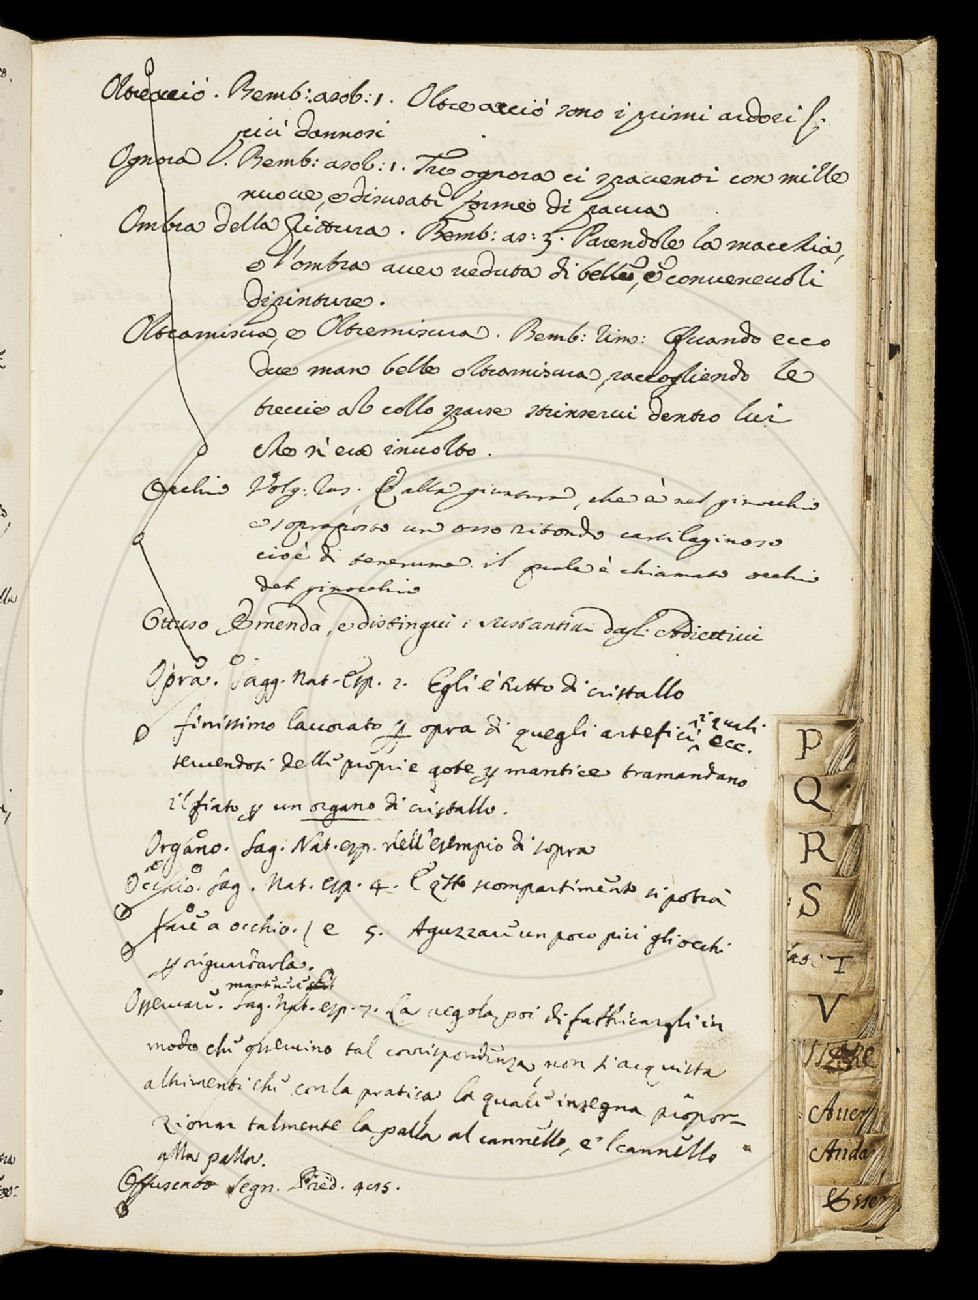 Oltreacciò. Bemb: asob: 1. Oltreacciò sono i primi ardori s:
più dannosi
Ognora. Bemb: asob: 1. Tre ognora ci spaventi con mille
nuove, e disusate forme di paura
Ombra della Pittura. Bemb: as: 3. Parendole la macchia,
e l'ombra aver veduta di belle, e convenevoli
dipinture.
Oltramisura, e Oltremisura. Bemb: Rim: Quando ecco
due man belle oltramisura, raccogliendo le
treccie al collo sparse strinservi dentro lui
che si era involto.
Occhio Volg: Ras: E alla giuntura, che è nel ginocchio
e soprapposto un osso ritondo cartilaginoso
cioè di tenerume il quale è chiamato occhio
del ginocchio
Ottuso Emenda, e distingui i sustantivi dagl: Adiettivi
Opra. Sagg. Nat. Esp. 2. Egli è tutto di cristallo
finissimo lavorato p opra di quegli artefici, i quali ecc.
servendosi delle proprie gote p mantice tramandano
il fiato p un organo di cristallo.
Organo. Sag. Nat. esp. nell'esempio di sopra
Occhio. Sag. Nat. esp. 4. E qsto scompartimento si potrà
fare a occhio. / e 5. Aguzzare un poco più gli occhi
p riguardarla.
Osservare. Sag. Nat. esp. 7. La regola poi di fabbricargli in
modo che osservino tal corrispondenza, non s'acquista
altrimenti che con la pratica la quale insegna propor-
zionar talmente la palla al cannello, e 'l cannello
alla palla.
Offuscato Segn. Pred. 4 c15.
P
Q
R
S
T
V
Aver
Anda
Esser